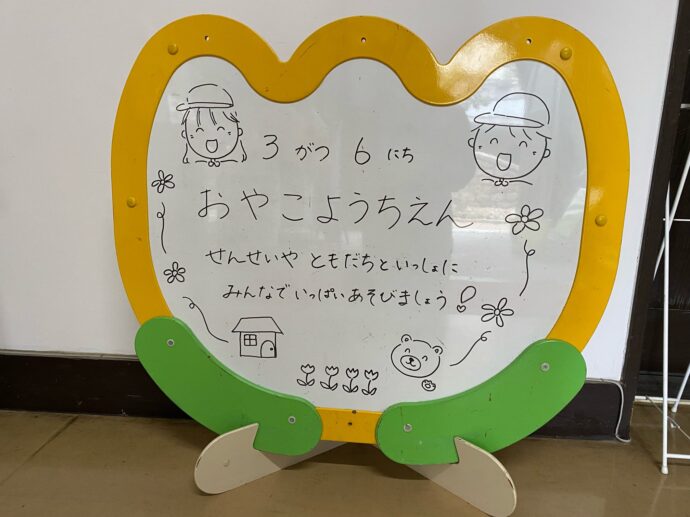 3 がつ 6 にち
おやこようちえん
せんせいや ともだちといっしょに
みんなでいっぱいあそびましょう!